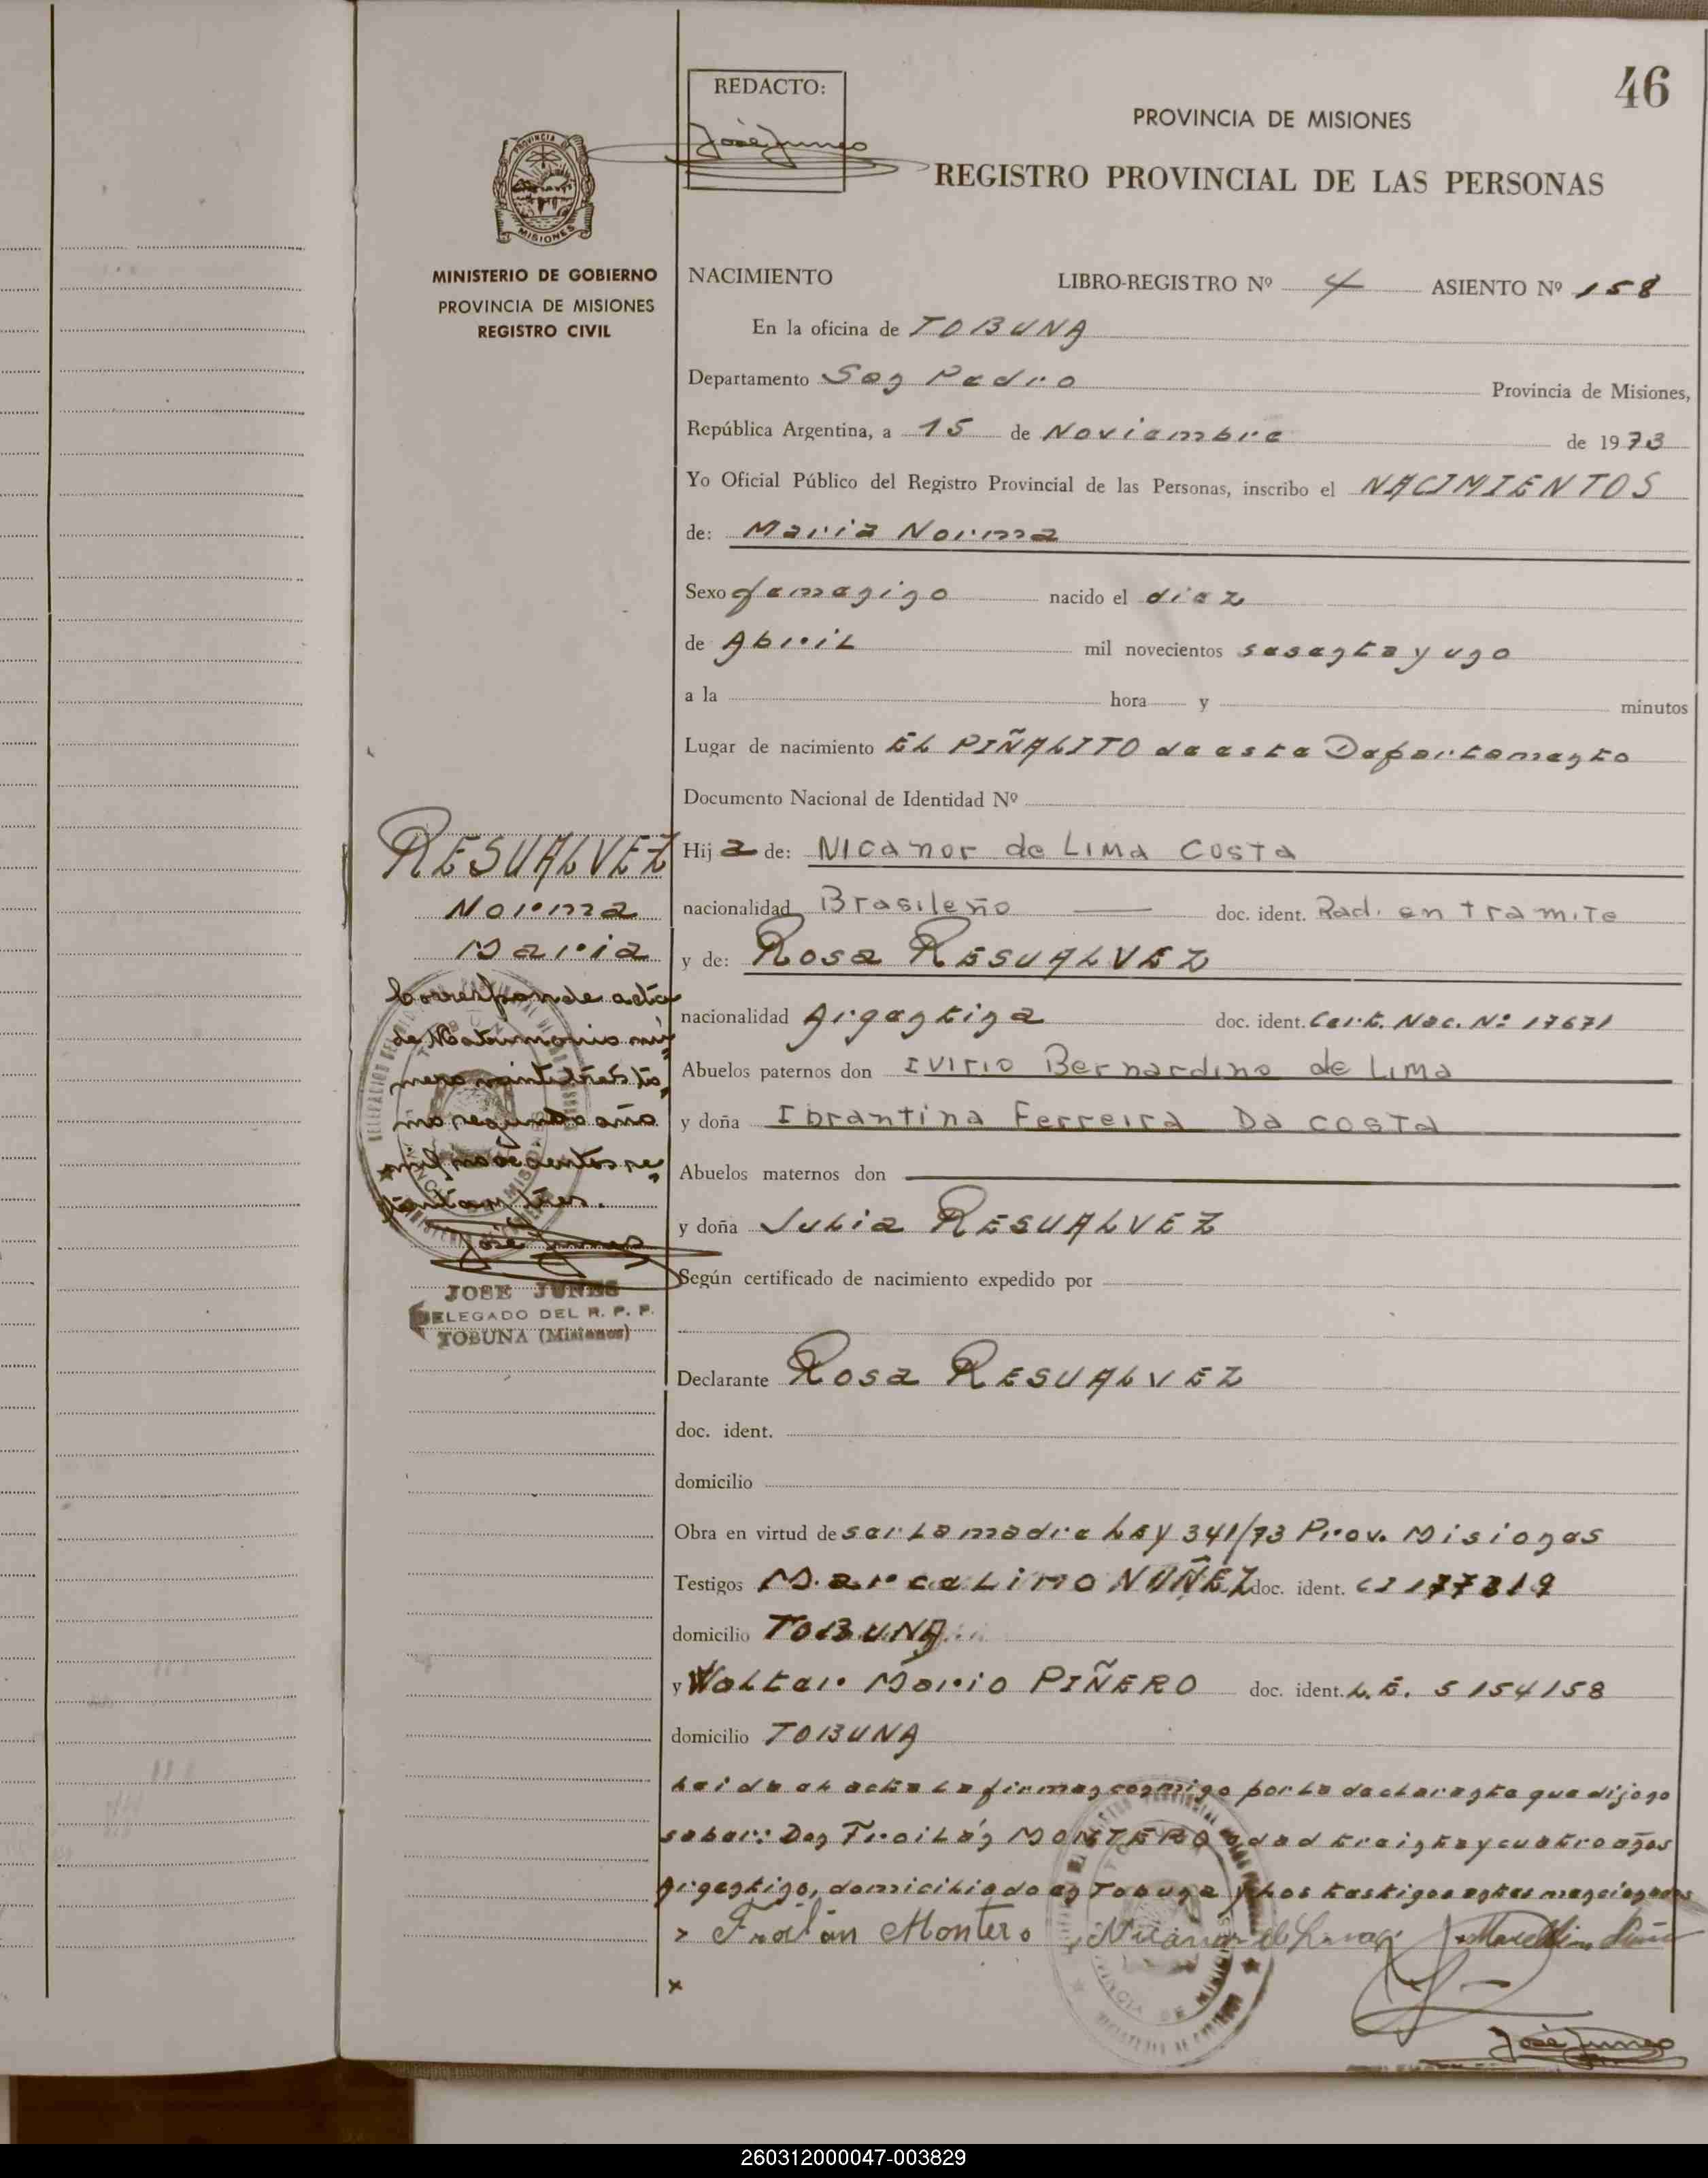 46
REDACTO:
José Junes
PROVINCIA DE MISIONES
REGISTRO PROVINCIAL DE LAS PERSONAS
PROVINCIA DE
MISIONES
MINISTERIO DE GOBIERNO
PROVINCIA DE MISIONES
REGISTRO CIVIL
NACIMIENTO LIBRO-REGISTRO Nº 4 ASIENTO Nº 158
En la oficina de TOBUNA
Departamento San Pedro Provincia de Misiones,
República Argentina, a 15 de Noviembre de 1973
Yo Oficial Público del Registro Provincial de las Personas, inscribo el NACIMIENTOS
de: Maria Norma
Sexo femenino nacido el diez
de Abril mil novecientos sesenta y uno
a la hora y minutos
Lugar de nacimiento EL PIÑALITO de este Departamento
Documento Nacional de Identidad Nº
Hij a de: Nicanor de Lima Costa
nacionalidad Brasileño doc. ident. Rad. en tramite
y de: Rosa RESUALVEZ
nacionalidad Argentina doc. ident. Cert. Nac. Nº 17671
Abuelos paternos don Ivirio Bernardino de Lima
y doña Ibrantina Ferreira Da Costa
Abuelos maternos don
y doña Julia RESUALVEZ
Según certificado de nacimiento expedido por
Declarante Rosa RESUALVEZ
doc. ident.
domicilio
Obra en virtud de ser la madre Ley 341/73 Prov. Misiones
Testigos Marcelino NUÑEZ doc. ident. CI 177319
domicilio TOBUNA
y Walter Mario PIÑERO doc. ident. L.E. 5154158
domicilio TOBUNA
Leida el acta la firman conmigo por la declarante que dijo no
saber: Don Froilán MONTERO edad treinta y cuatro años
Argentino, domiciliado en Tobuna y los testigos antes mencionados
Froilan Montero Nicanor de Lima Marcelino
José Junes
RESUALVEZ
Norma
Maria
Corresponde acta
de Matrimonio nú
mero veintitres to
mo segundo año
mil novecientos se
tenta y tres.
José Junes
JOSE JUNES
DELEGADO DEL R. P. P.
TOBUNA (Misiones)
260312000047-003829